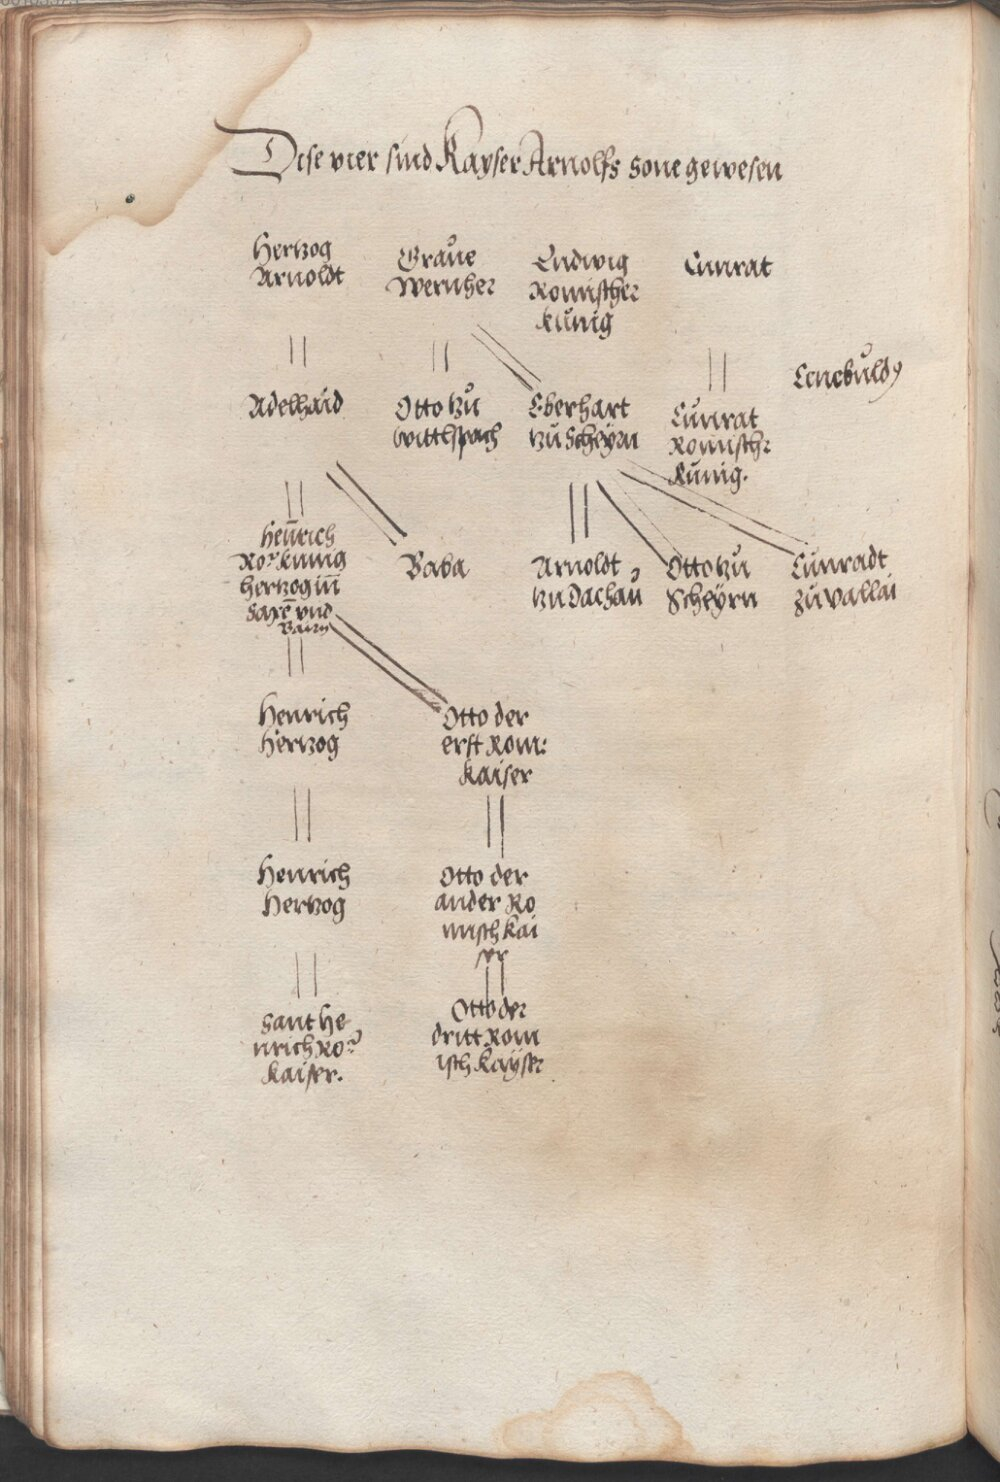 Dise vier sind Kayser Arnolfs sone gewesen
Hertzog
Arnoldt
Graůe
Wernher
Ludwig
Romischer
kůnig
Cunrat
Adelhaid
Otto tzů
wittlspach
Eberhart
tzů Scheÿrn
Cůnrat
Romischr
kůnig.
Henrich
Ro kunig
hertzog in
saxē vnd
Bairn
Baba
Arnoldt
tzu Dachaů
Otto tzů
Scheÿrn
Cůnradt
zů vallai
Henrich
Hertzog
Otto der
erst Rom:
kaiser
Henrich
Hertzog
Otto der
ander Ro
misch kai
ser
Sant he
nrich Ro
kaiser.
Otto der
dritt Rom
isch kaÿser